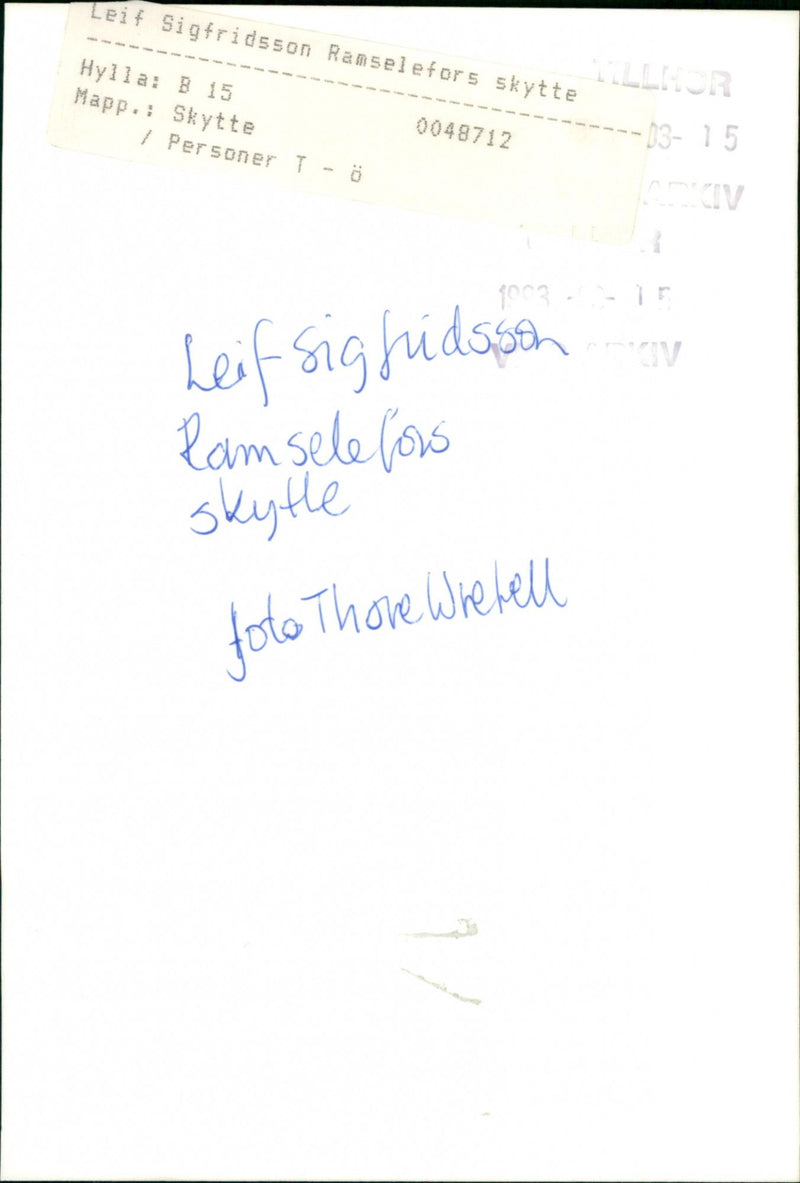 Leif Sigfridsson Ramselefors skytte
Hylla: B 15
Mapp.: Skytte 0048712
/ Personer T - ö
TILLHÖR
03- 15
ARKIV
1993 - 15
Leif Sigfridsson
Ramselefors
skytte
foto Thore Wretell